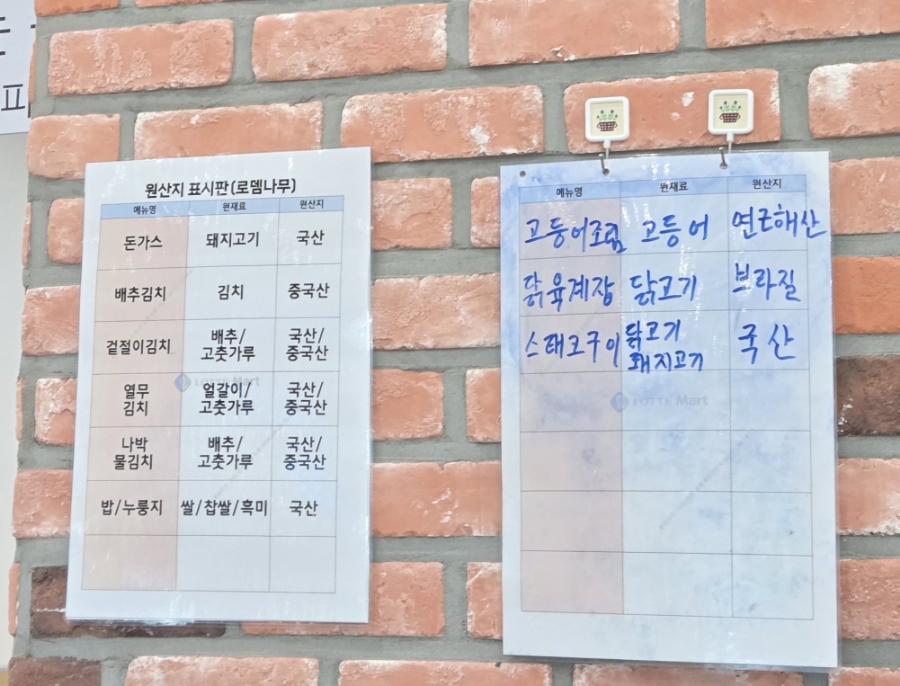 원산지 표시판(로뎀나무)
메뉴명 원재료 원산지
돈가스 돼지고기 국산
배추김치 김치 중국산
겉절이김치 배추/ 국산/
고춧가루 중국산
열무 얼갈이/ 국산/
김치 고춧가루 중국산
나박 배추/ 국산/
물김치 고춧가루 중국산
밥/누룽지 쌀/찹쌀/흑미 국산
LOTTE Mart
메뉴명 원재료 원산지
고등어조림 고등어 연근해산
닭육계장 닭고기 브라질
스태코구이 닭고기 국산
돼지고기
LOTTE Mart